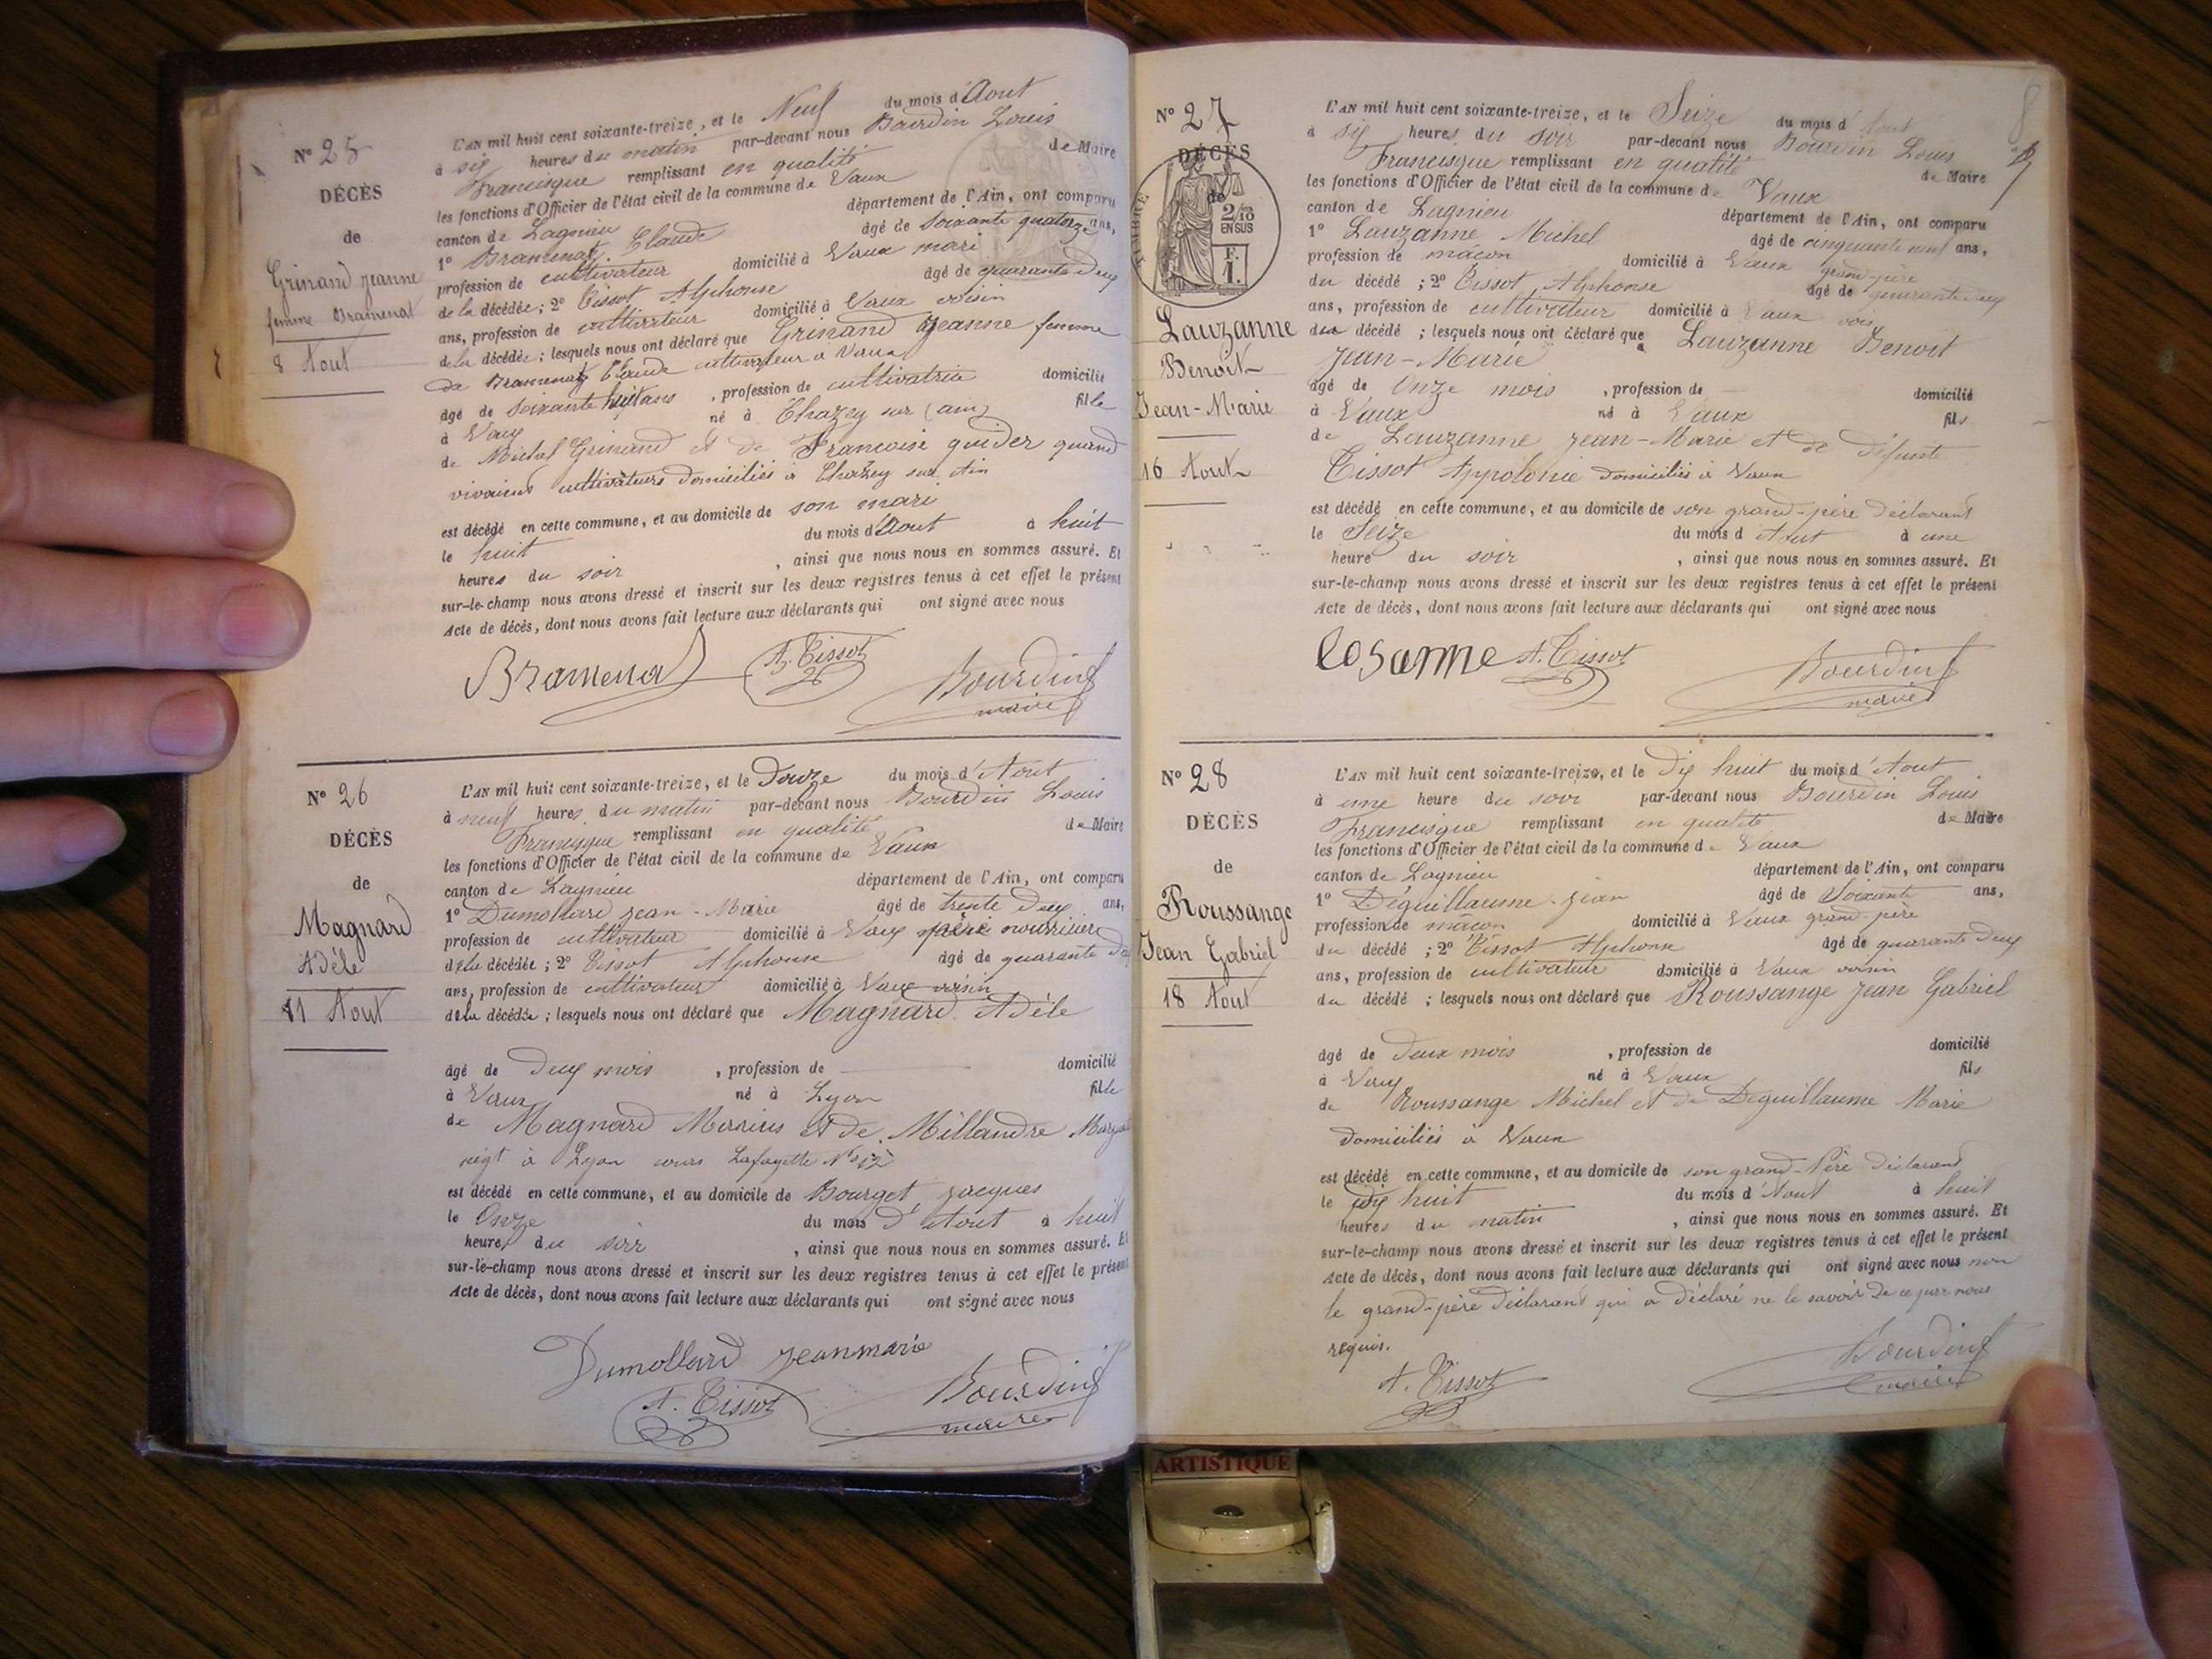 N° 25
DÉCÈS
de
Grinand Jeanne
femme Bramenat
8 Aout
L'AN mil huit cent soixante-treize, et le Neuf du mois d'Aout
à six heures du matin par-devant nous Bourdin Louis
Francisque remplissant en qualité de Maire
les fonctions d'Officier de l'état civil de la commune de Vaux
canton de Lagnieu département de l'Ain, ont comparu
1° Bramenat Claude âgé de soixante quatorze ans,
profession de cultivateur domicilié à Vaux mari
de la décédée ; 2° Tissot Alphonse âgé de quarante deux
ans, profession de cultivateur domicilié à Vaux voisin
de la décédée ; lesquels nous ont déclaré que Grinand Jeanne femme
de Bramenat Claude cultivateur à Vaux
âgé de soixante huit ans , profession de cultivatrice domicilié
à Vaux né à Chazey sur (ain) fille
de Michel Grinand et de Francoise guider quand
vivaient cultivateurs domiciliés à Chazey sur Ain
est décédé en cette commune, et au domicile de son mari
le huit du mois d'Aout à huit
heures du soir , ainsi que nous nous en sommes assuré. Et
sur-le-champ nous avons dressé et inscrit sur les deux registres tenus à cet effet le présent
Acte de décès, dont nous avons fait lecture aux déclarants qui ont signé avec nous
Bramenat A. Tissot Bourdin
maire
N° 26
DÉCÈS
de
Magnard
Adéle
11 Aout
L'AN mil huit cent soixante-treize, et le Douze du mois d'Aout
à neuf heures du matin par-devant nous Bourdin Louis
Francisque remplissant en qualité de Maire
les fonctions d'Officier de l'état civil de la commune de Vaux
canton de Lagnieu département de l'Ain, ont comparu
1° Dumollard Jean-Marie âgé de trente deux ans,
profession de cultivateur domicilié à Vaux père nourricier
de la décédée ; 2° Tissot Alphonse âgé de quarante deux
ans, profession de cultivateur domicilié à Vaux voisin
de la décédée ; lesquels nous ont déclaré que Magnard Adéle
âgé de Deux mois , profession de domicilié
à Vaux né à Lyon fille
de Magnard Marius et de Millandre
négt à Lyon cours Lafayette N° 12
est décédé en cette commune, et au domicile de Bourget Jacques
le Onze du mois d'Aout à huit
heures du soir , ainsi que nous nous en sommes assuré. Et
sur-le-champ nous avons dressé et inscrit sur les deux registres tenus à cet effet le présent
Acte de décès, dont nous avons fait lecture aux déclarants qui ont signé avec nous
Dumollard jeanmarie
A. Tissot Bourdin
maire
8
N° 27
DÉCÈS
de
TIMBRE
2/10
EN SUS
F.
1.
Lauzanne
Benoit
Jean-Marie
16 Aout
L'AN mil huit cent soixante-treize, et le Seize du mois d'Aout
à six heures du soir par-devant nous Bourdin Louis
Francisque remplissant en qualité de Maire
les fonctions d'Officier de l'état civil de la commune de Vaux
canton de Lagnieu département de l'Ain, ont comparu
1° Lauzanne Michel âgé de cinquante neuf ans,
profession de mâcon domicilié à Vaux grand-père
du décédé ; 2° Tissot Alphonse âgé de quarante deux
ans, profession de cultivateur domicilié à Vaux voisin
du décédé ; lesquels nous ont déclaré que Lauzanne Benoit
Jean-Marie
âgé de Onze mois , profession de domicilié
à Vaux né à Vaux fils
de Lauzanne Jean-Marie et de défunte
Tissot Appolonie domiciliés à Vaux
est décédé en cette commune, et au domicile de son grand-père déclarant
le Seize du mois d'Aout à une
heure du soir , ainsi que nous nous en sommes assuré. Et
sur-le-champ nous avons dressé et inscrit sur les deux registres tenus à cet effet le présent
Acte de décès, dont nous avons fait lecture aux déclarants qui ont signé avec nous
Losanne A. Tissot Bourdin
maire
N° 28
DÉCÈS
de
Roussange
Jean Gabriel
18 Aout
L'AN mil huit cent soixante-treize, et le Dix huit du mois d'Aout
à une heure du soir par-devant nous Bourdin Louis
Francisque remplissant en qualité de Maire
les fonctions d'Officier de l'état civil de la commune de Vaux
canton de Lagnieu département de l'Ain, ont comparu
1° Déguillaume Jean âgé de Soixante ans,
profession de mâcon domicilié à Vaux grand-père
du décédé ; 2° Tissot Alphonse âgé de quarante deux
ans, profession de cultivateur domicilié à Vaux voisin
du décédé ; lesquels nous ont déclaré que Roussange Jean Gabriel
âgé de deux mois , profession de domicilié
à Vaux né à Vaux fils
de Roussange Michel et de Déguillaume Marie
domiciliés à Vaux
est décédé en cette commune, et au domicile de son grand-Père déclarant
le dix huit du mois d'Aout à huit
heures du matin , ainsi que nous nous en sommes assuré. Et
sur-le-champ nous avons dressé et inscrit sur les deux registres tenus à cet effet le présent
Acte de décès, dont nous avons fait lecture aux déclarants qui ont signé avec nous non
le grand-père déclarant qui a déclaré ne le savoir de ce par nous
requis.
A. Tissot Bourdin
maire
ARTISTIQUE